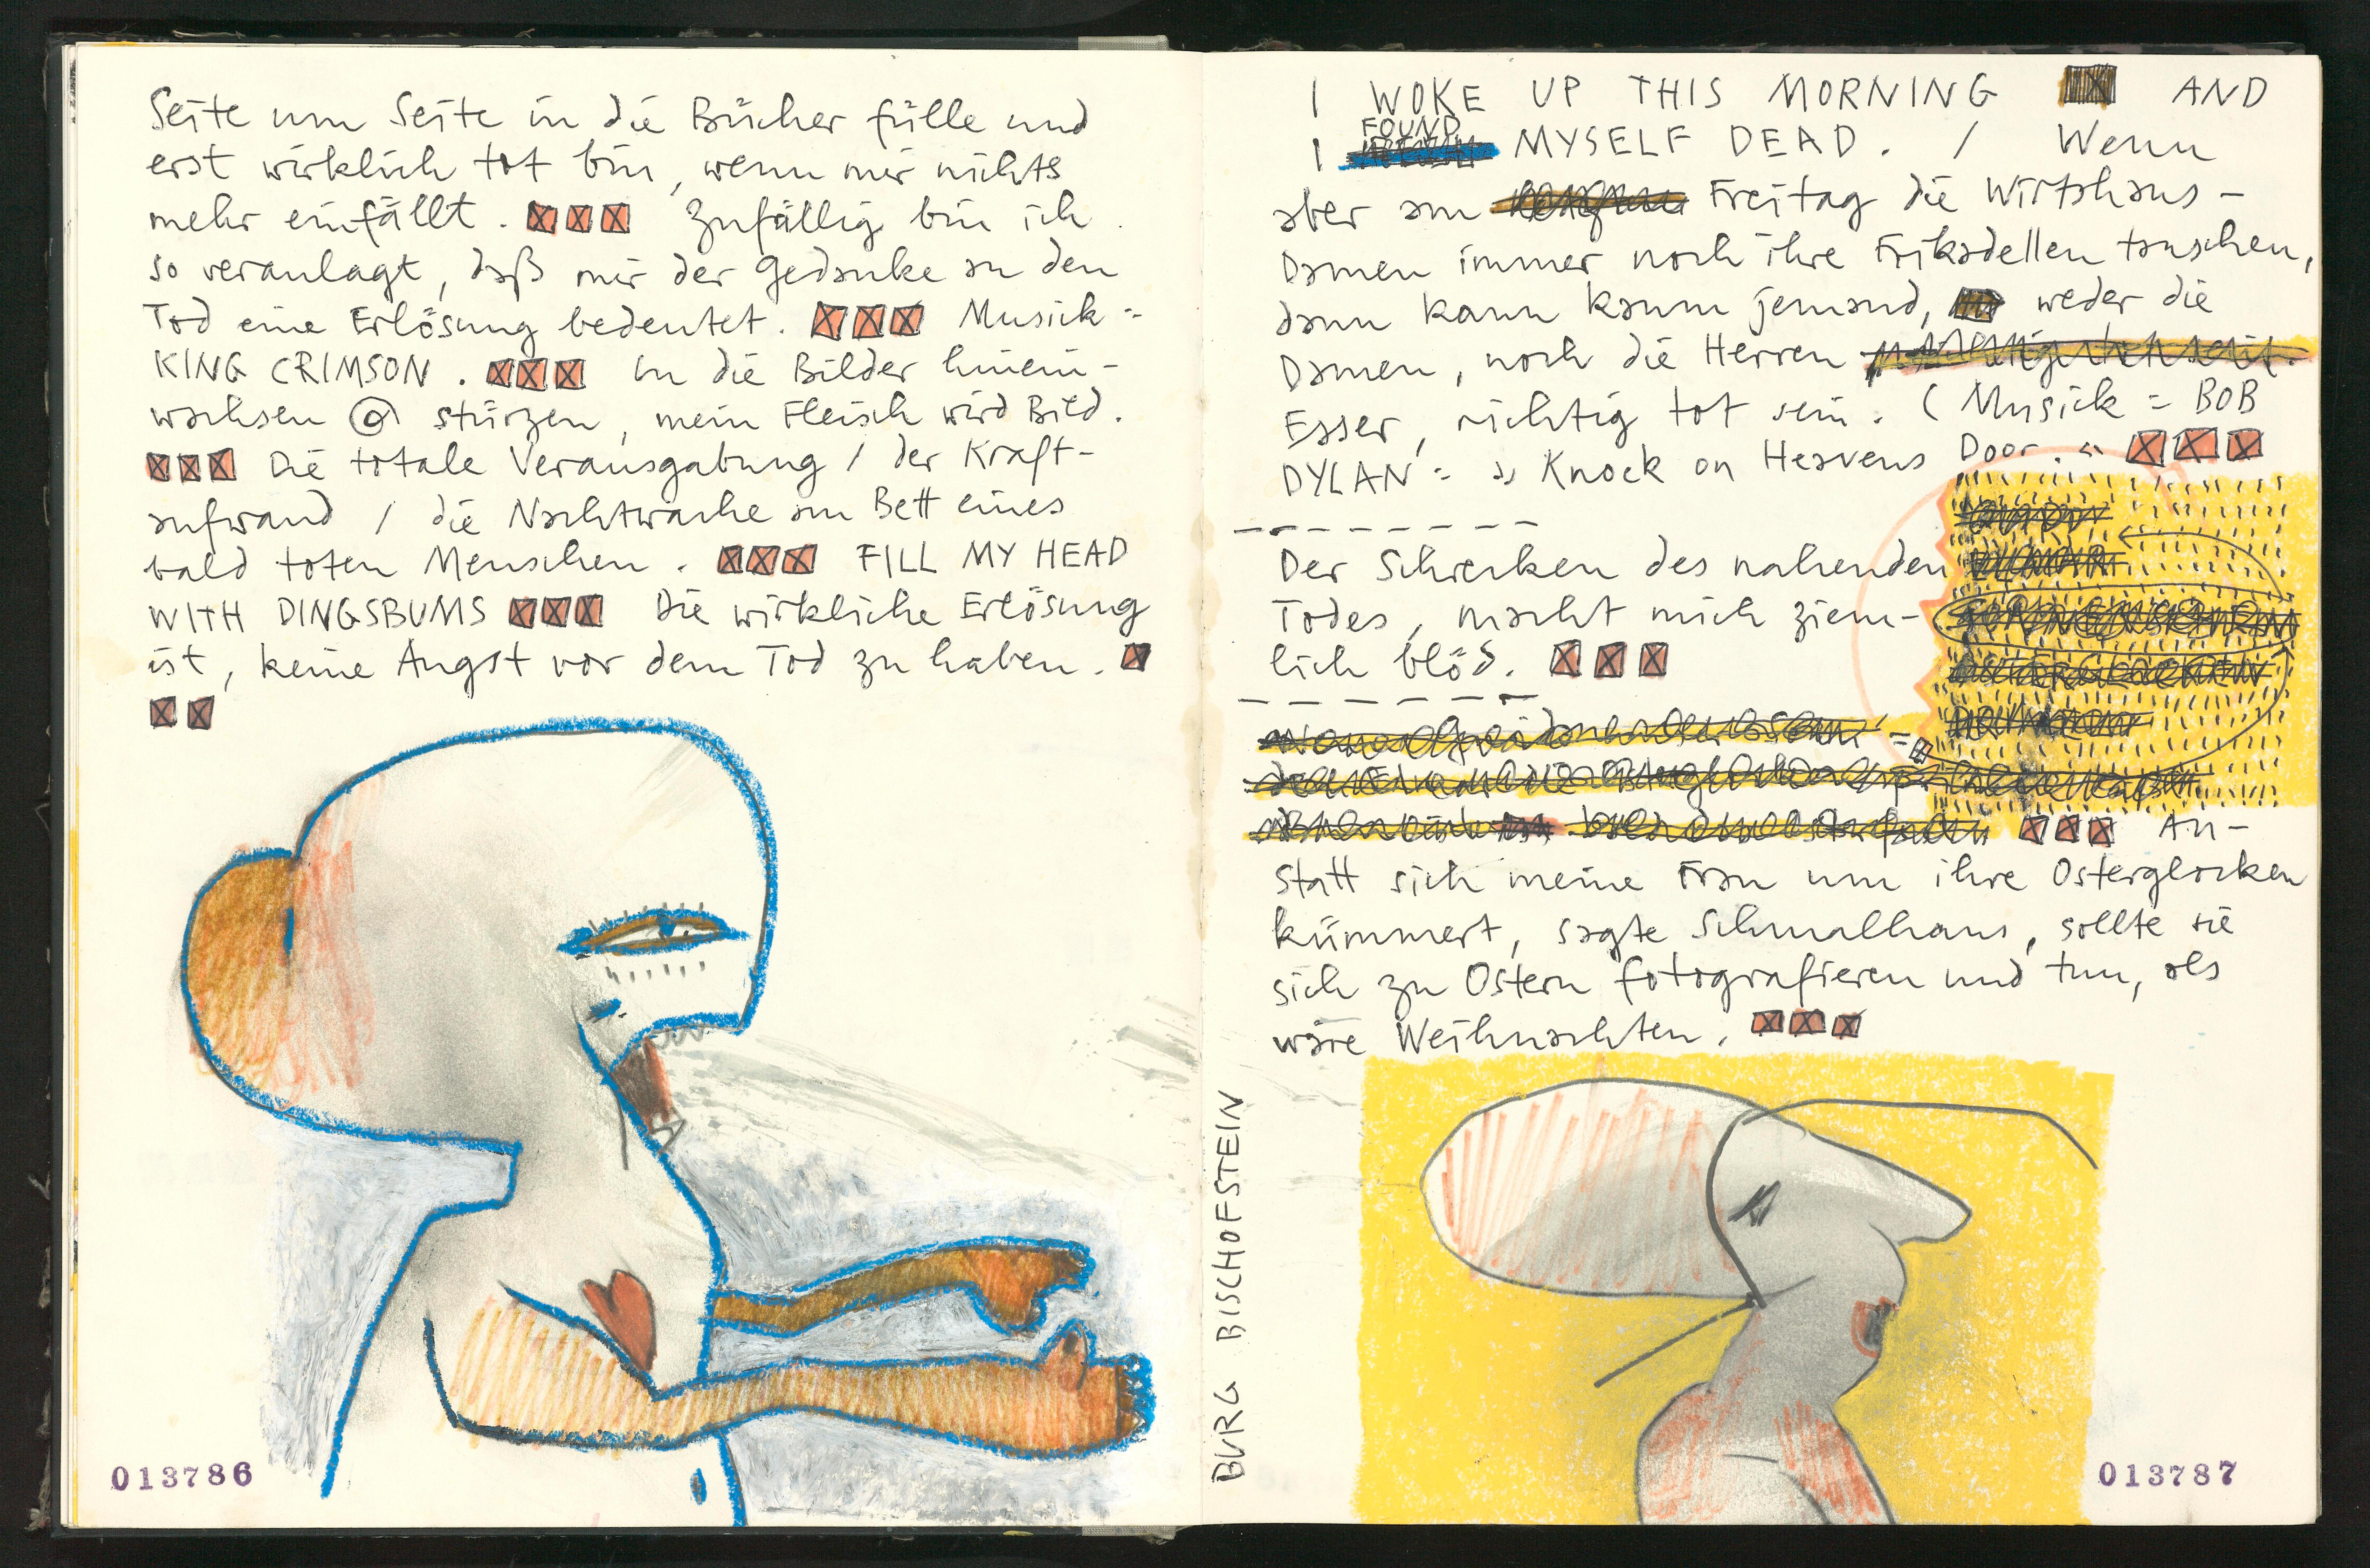 Seite um Seite in die Bücher fülle und
erst wirklich tot bin, wenn mir nichts
mehr einfällt. Zufällig bin ich
so veranlagt, daß mir der Gedanke an den
Tod eine Erlösung bedeutet. Musick =
KING CRIMSON. In die Bilder hinein-
wachsen @ stürzen, mein Fleisch wird Bild.
Die totale Verausgabung / der Kraft-
aufwand / die Nachtwache am Bett eines
bald toten Menschen. FILL MY HEAD
WITH DINGSBUMS Die wirkliche Erlösung
ist, keine Angst vor dem Tod zu haben.
013786
I WOKE UP THIS MORNING AND
FOUND
I MYSELF DEAD. / Wenn
aber am Freitag die Wirtshaus-
Damen immer noch ihre Frikadellen tauschen,
dann kann kaum jemand, weder die
Damen, noch die Herren
Esser, richtig tot sein. (Musick = BOB
DYLAN = » Knock on Heavens Door. «
Der Schrecken des nahenden
Todes, macht mich ziem-
lich blöd.
An-
statt sich meine Frau um ihre Osterglocken
kümmert, sagte Schmalhans, sollte sie
sich zu Ostern fotografieren und tun, als
wäre Weihnachten.
BURG BISCHOFSTEIN
013787